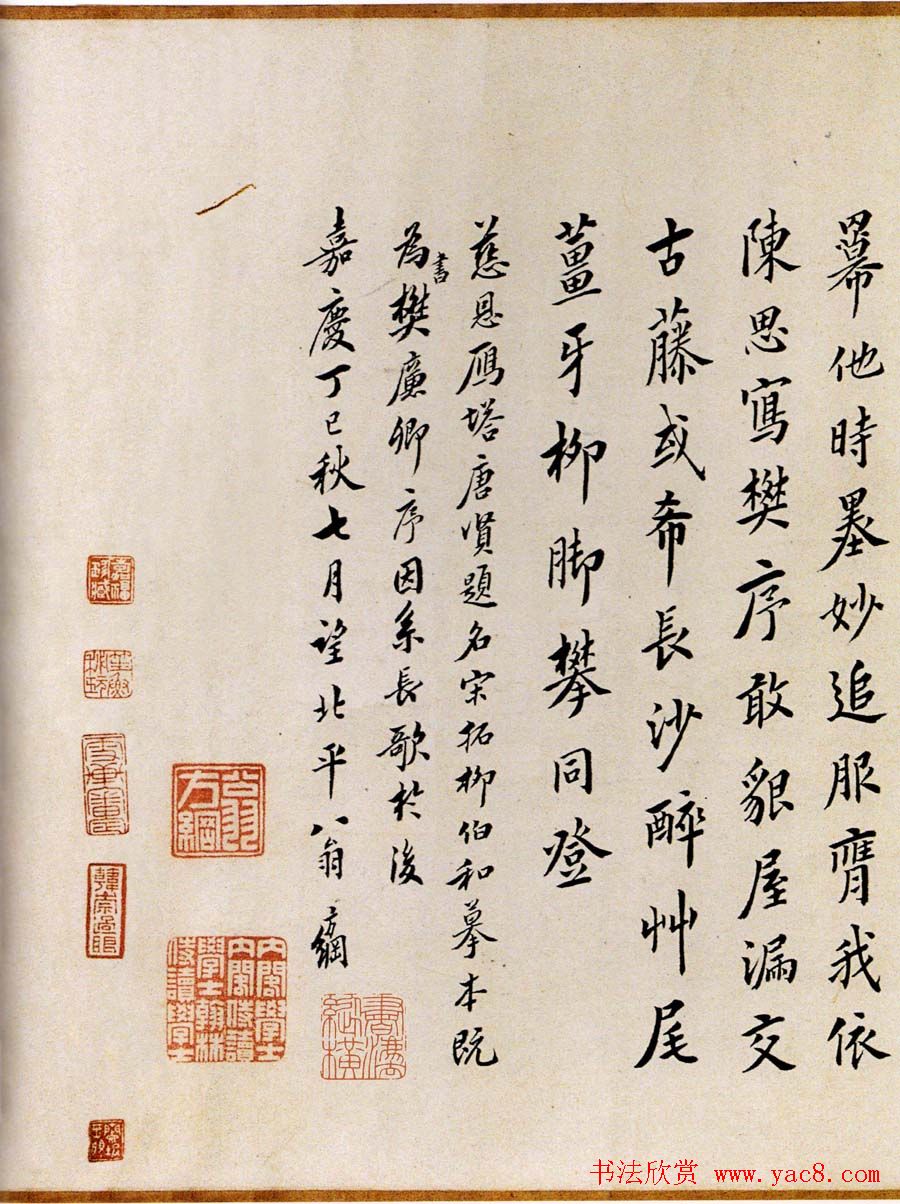 冪他時墨妙追服膺我依
陳思寫樊序敢貌屋漏交
古藤或希長沙醉艸尾
薑牙柳脚攀同登
慈恩鴈塔唐賢題名宋拓柳伯和摹本既
為書樊廉卿序因系長歌於後
嘉慶丁巳秋七月望北平翁方綱
翁方綱
內閣學士內閣侍讀學士翰林侍讀學士
書法欣赏 www.yac8.com